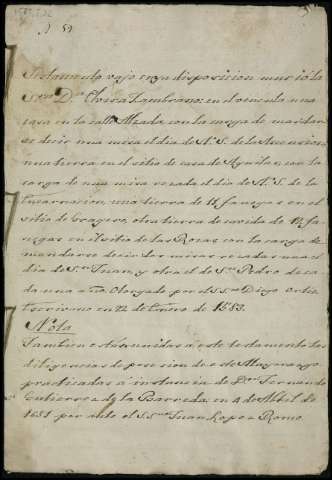 Nº 59
Testamento vajo cuya disposicion murió la
Sra. Dª Elvira Zambrano; en el vincula una
casa en la calle Alzada con la carga de mandar
se decir una misa el dia de N. S. de la Asuncion
una tierra en el sitio de casa de Aguila, con la
carga de una misa rezada el dia de N. S. de la
Encarnacion, una tierra de 11 fanegas en el
sitio de otra tierra de cavida de 12 fa
negas en el sitio de las Rozas con la carga de
mandarse decir tres misas rezadas una el
dia de Sn. Juan, y otra el de Sn. Pedro de ca
da una año. Otorgado por el SSno Diego Ortiz
Escrivano en 22 de Enero de 1583.
Nota
Tambien estan unidas a este testamento las
diligencias de posesion de el Mayorazgo
practicadas á instancia de Dn. Fernando
Gutierrez de la Barreda en 4 de Abril de
1651 por ante el SSno Juan Lopez Romo